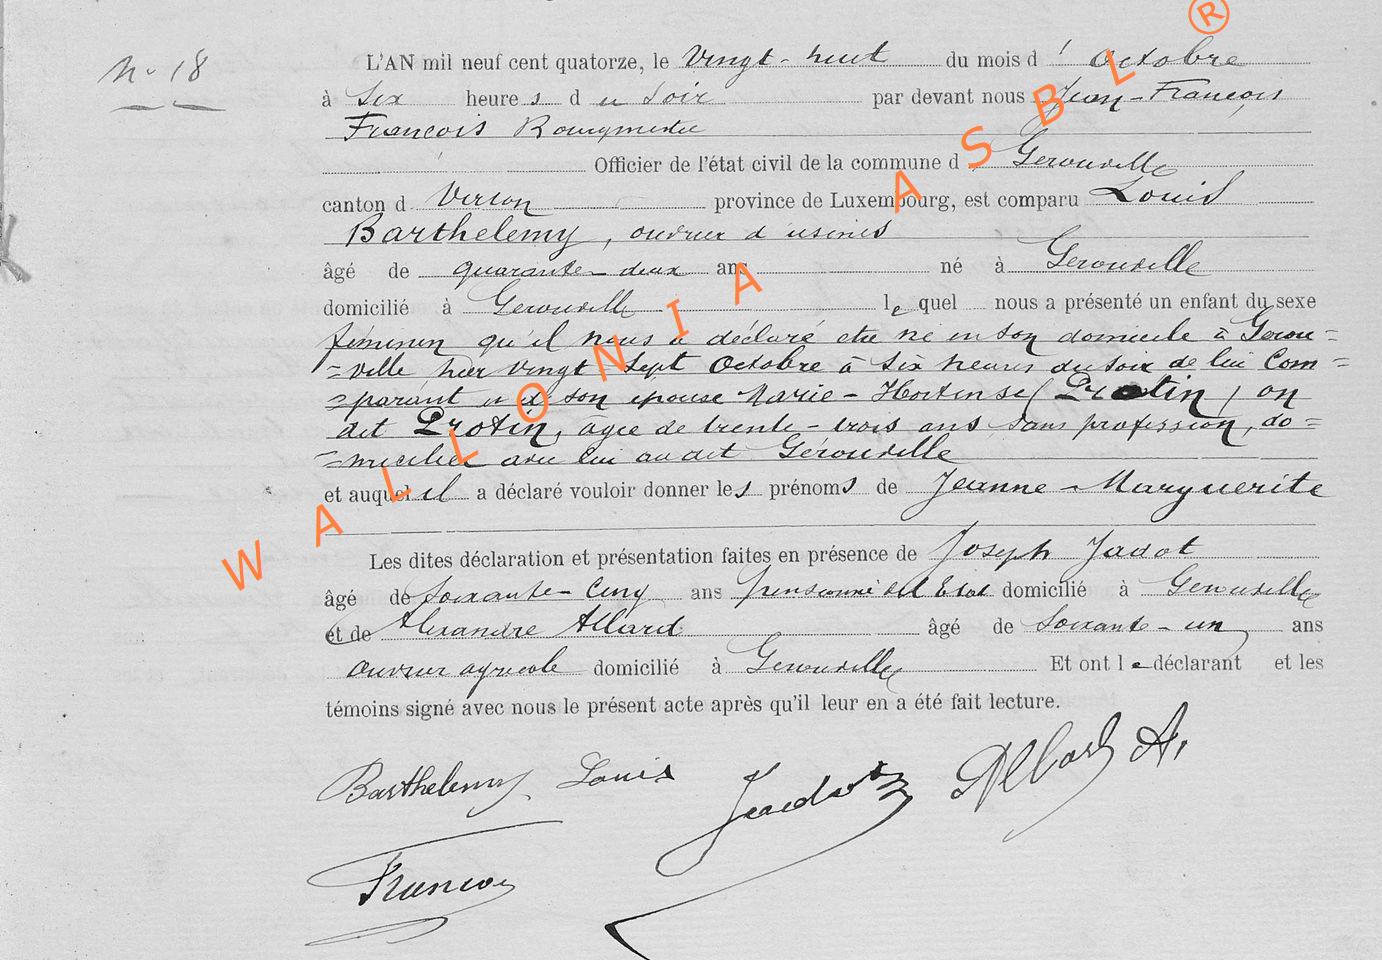 N° 18
L'AN mil neuf cent quatorze, le Vingt-huit du mois d'Octobre
à Six heures du Soir par devant nous Jean-François
François Bourgmestre
Officier de l'état civil de la commune d Gérouville
canton d Virton province de Luxembourg, est comparu Louis
Barthelemy, ouvrier d'usines
âgé de quarante-deux ans né à Gérouville
domicilié à Gérouville lequel nous a présenté un enfant du sexe
féminin qu'il nous a déclaré être né en son domicile à Gérou=
=ville hier Vingt-Sept Octobre à Six heures du soir de lui Com=
=parant et de son épouse Marie-Hortense (Protin) on
dit Protin, agée de trente-trois ans, sans profession, do=
=miciliée avec lui audit Gérouville
et auquel il a déclaré vouloir donner les prénoms de Jeanne-Marguerite
Les dites déclaration et présentation faites en présence de Joseph Jadot
âgé de Soixante-Cinq ans pensionné de l'Etat domicilié à Gérouville
et de Alexandre Allard âgé de Soixante-un ans
ouvrier agricole domicilié à Gérouville Et ont le déclarant et les
témoins signé avec nous le présent acte après qu'il leur en a été fait lecture.
Barthelemy Louis Jadot Allard A.
François
WALLONIA ASBL ®